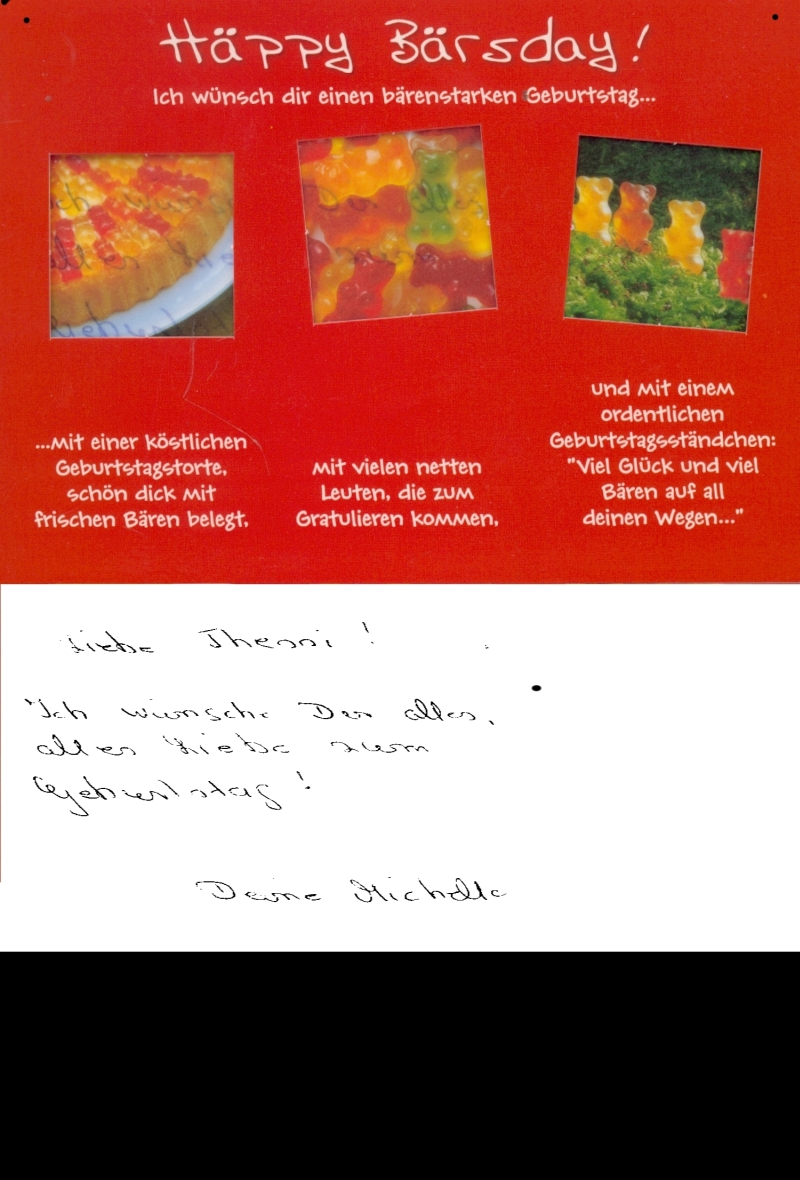 Häppy Bärsday!
Ich wünsch dir einen bärenstarken Geburtstag...
...mit einer köstlichen
Geburtstagstorte,
schön dick mit
frischen Bären belegt,
mit vielen netten
Leuten, die zum
Gratulieren kommen,
und mit einem
ordentlichen
Geburtstagsständchen:
"Viel Glück und viel
Bären auf all
deinen Wegen..."
Liebe Thessi!
Ich wünsche Dir alles,
alles Liebe zum
Geburtstag!
Deine Michelle